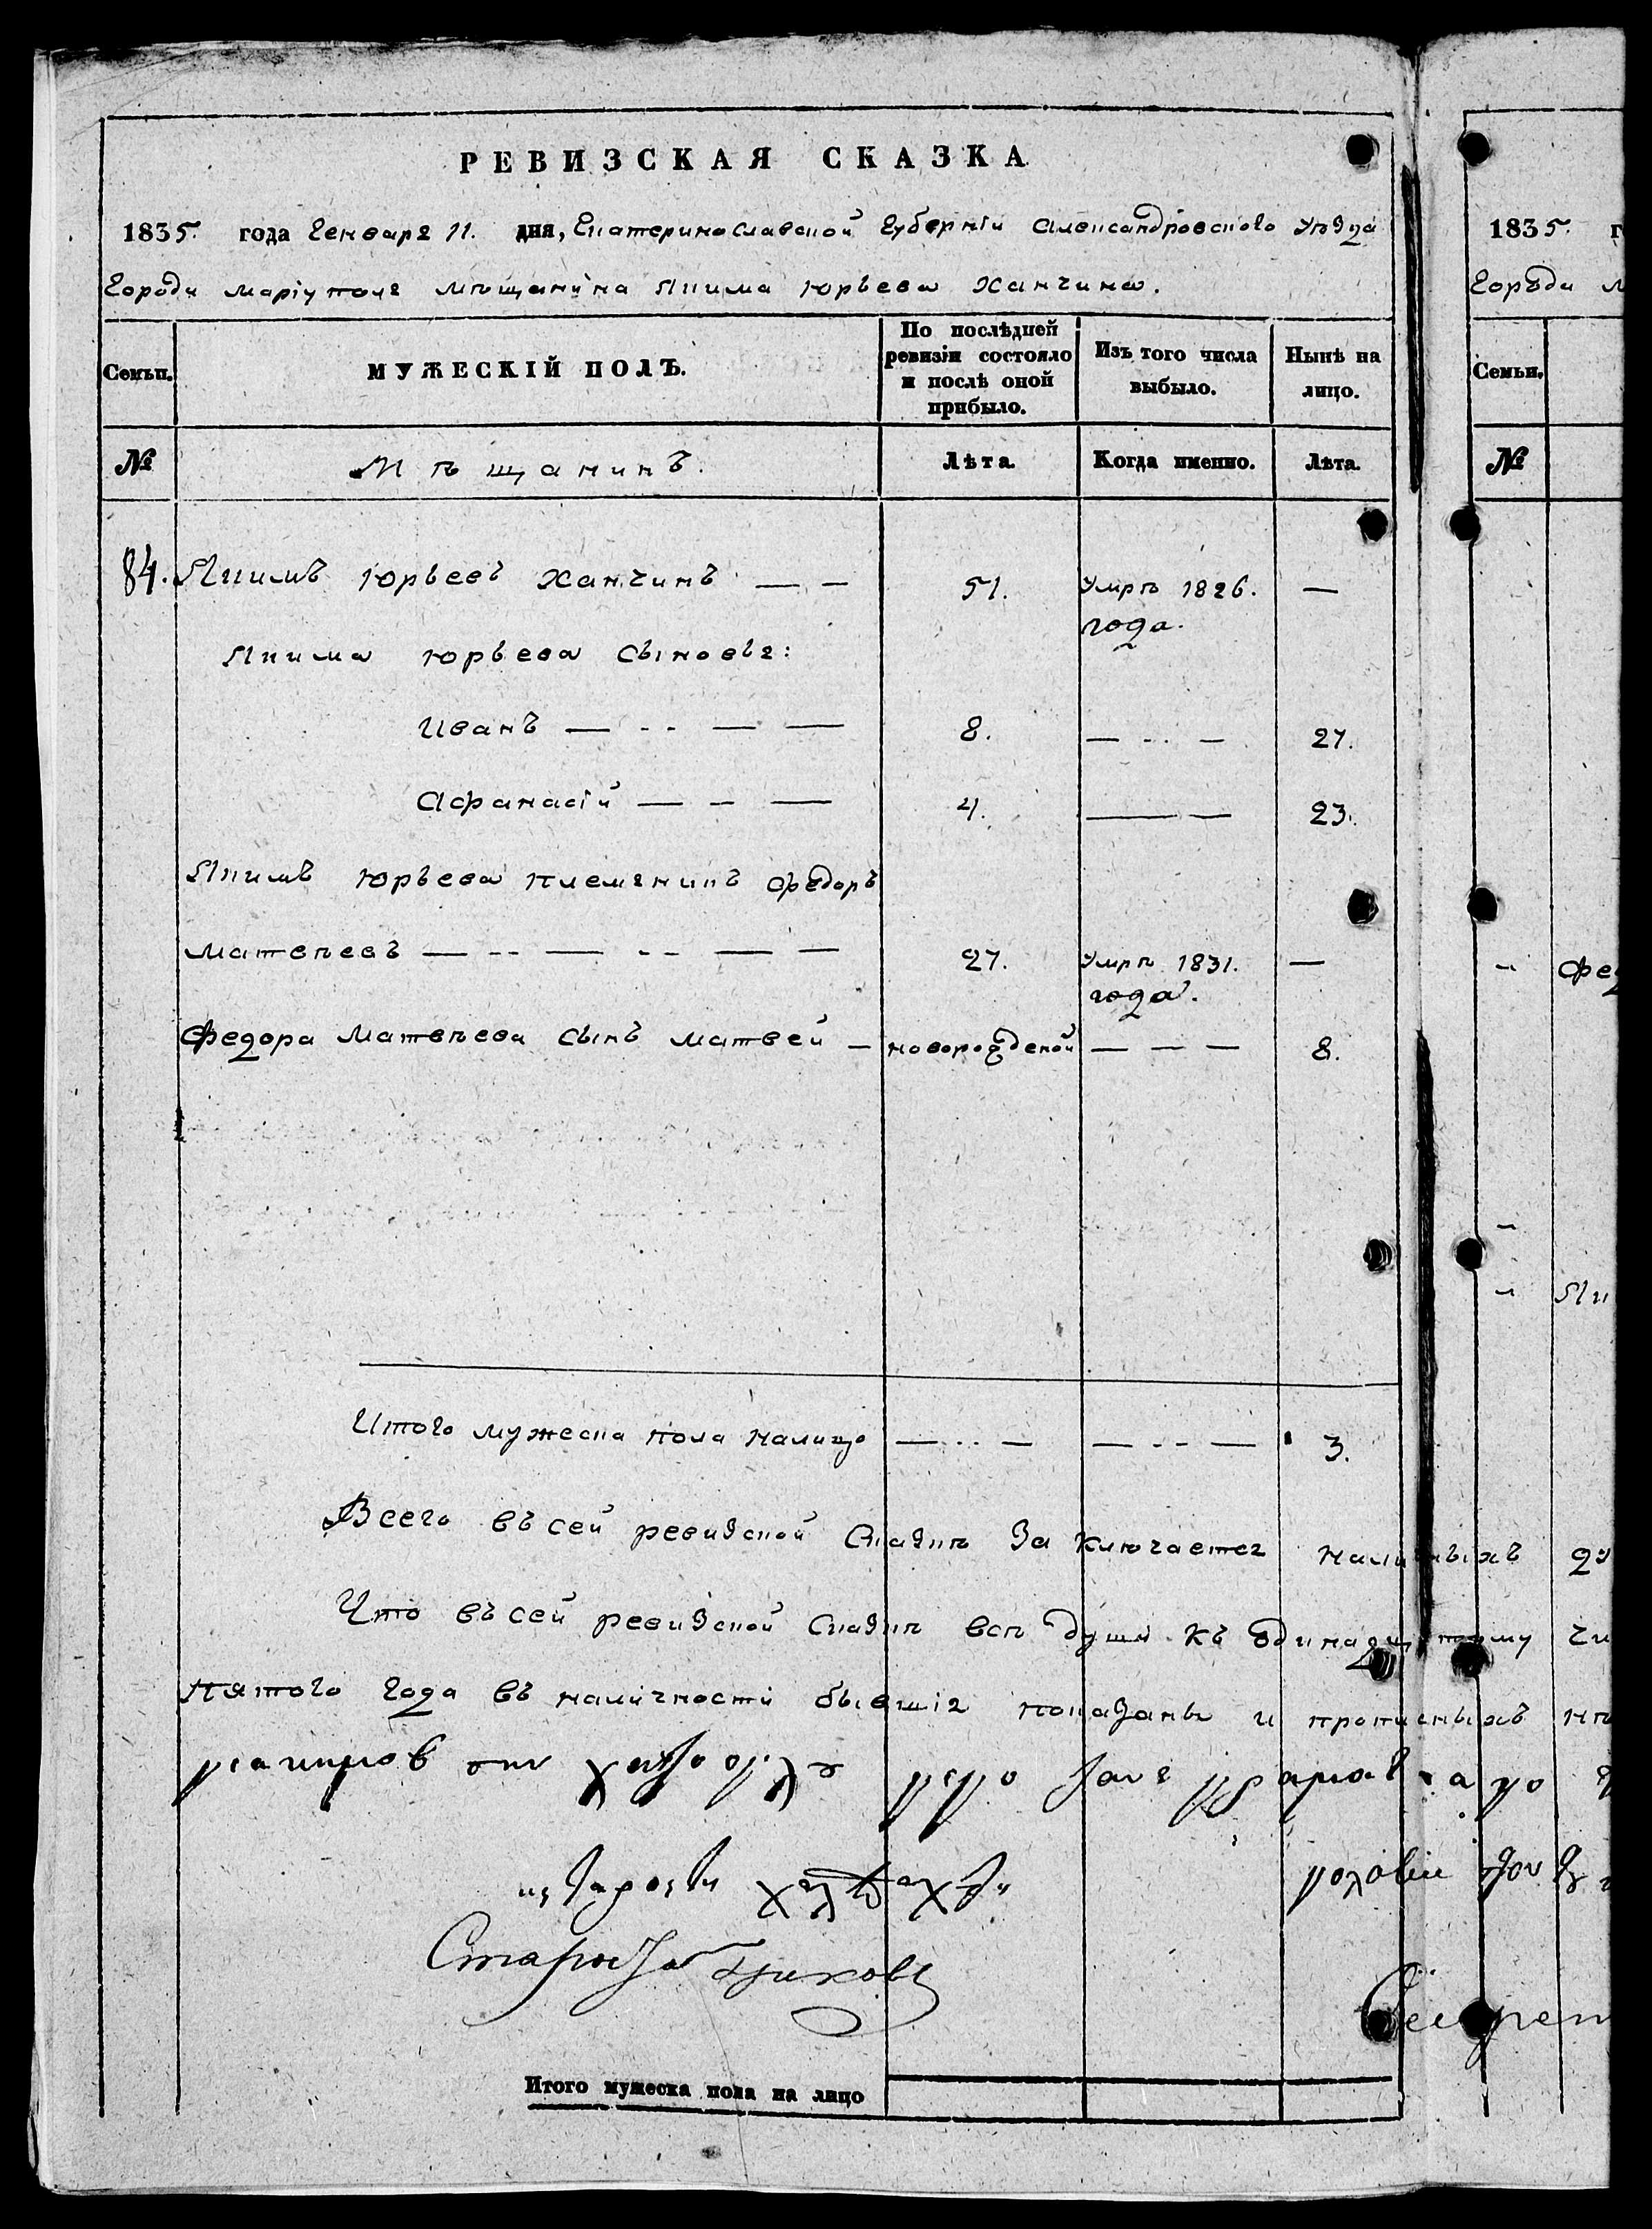 РЕВИЗСКАЯ СКАЗКА
1835. года Генваря 11. дня, Екатеринославской Губерніи Александровского Уѣзда
Города Маріуполя мѣщанина Якима Юрьева Ханчина.
Семьи. МУЖЕСКІЙ ПОЛЪ. По послѣдней ревизіи состояло и послѣ оной прибыло. Изъ того числа выбыло. Нынѣ на лицо.
№ Мѣщанинъ. Лѣта. Когда именно. Лѣта.
84. Якимъ Юрьевъ Ханчинъ — - 51. Умрѣ 1826. —
года.
Якима Юрьева сыновья:
Иванъ — - - — — 8. — - - — 27.
Афанасій — - — 4. — — 23.
Якимъ Юрьева племянникъ Федоръ
Матвѣевъ — - - — - - — — 27. Умрѣ 1831. —
года.
Федора Матвѣева сынъ Матвей — новорожденой — — — 8.
Итого мужеска пола налицо — - - — — - - — 3.
Всего въ сей ревизской Сказкѣ Заключается наличныхъ
Что въ сей ревизской Сказкѣ всѣ души къ Одинадцатому
пятого Года въ наличности бывшія показаны и прописныхъ
Староста
Итого мужеска пола на лицо
1835. г
Города М
Семьи.
№
" Фед
"
" Яки